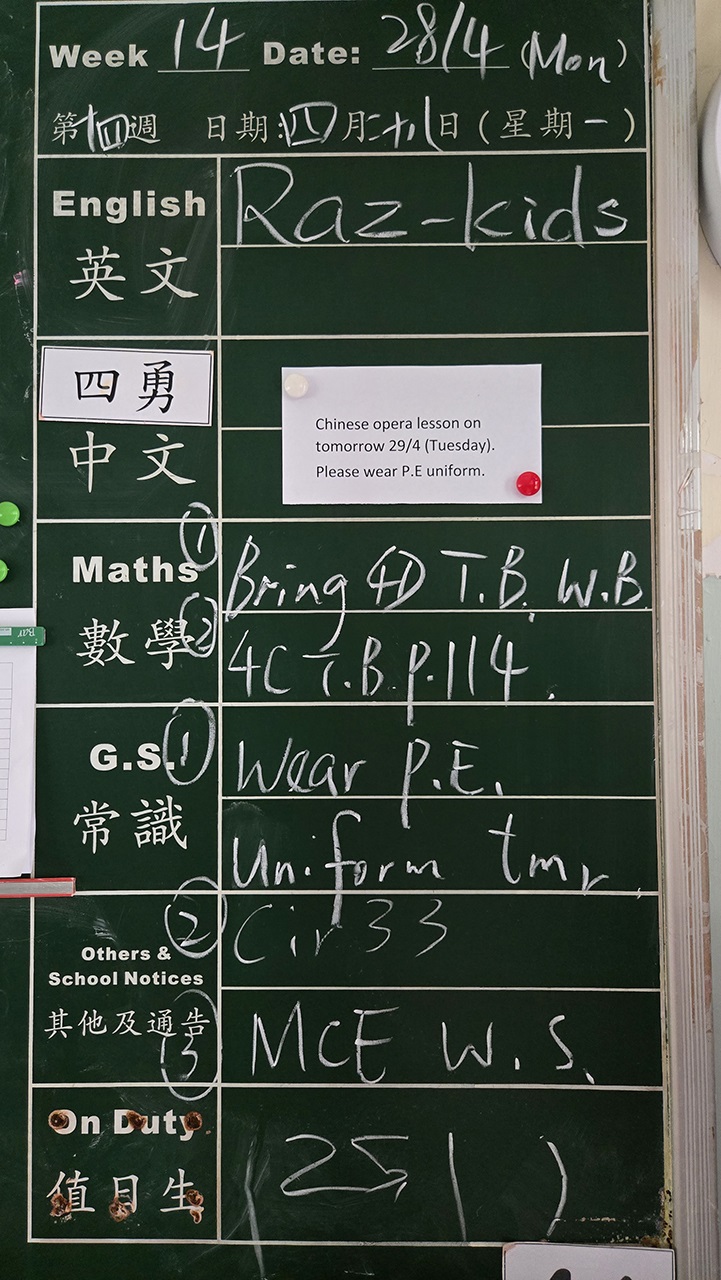 Week 14 Date: 28/4 (Mon)
第十四週 日期:四月二十八日(星期一)
English
英文
Raz-kids
四勇
中文
Chinese opera lesson on
tomorrow 29/4 (Tuesday).
Please wear P.E uniform.
Maths
數學
① Bring 4D T.B. W.B.
② 4C T.B. P.114.
G.S.
常識
① Wear P.E.
Uniform tmr.
Others &
School Notices
其他及通告
② Cir 33
③ MCE W.S.
On Duty
值日生
(25, 1 )